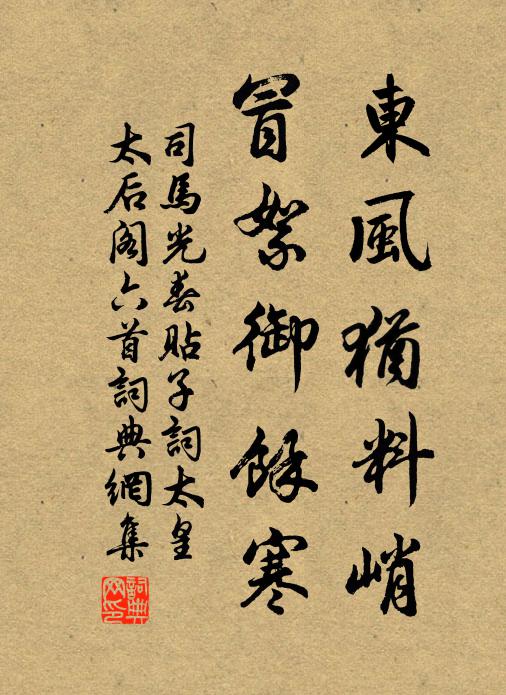 東風猶料峭
冒絮御餘寒
司馬光春貼子詞太皇
太后阁六首詞典網集
詞典
网印